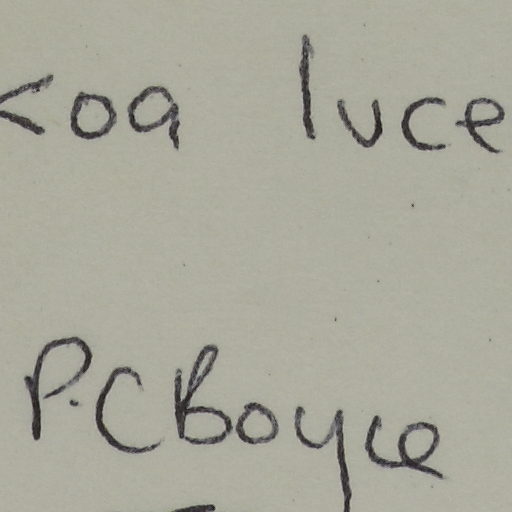 koa luce
P. C Boyce